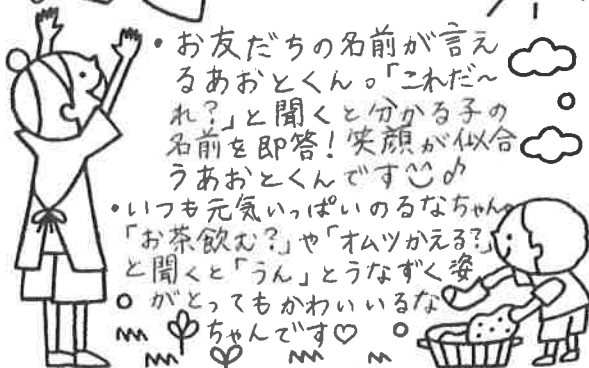 ・お友だちの名前が言え
るあおとくん。「これだ〜
れ?」と聞くと分かる子の
名前を即答!笑顔が似合
うあおとくんです♪
・いつも元気いっぱいのるなちゃん。
「お茶飲む?」や「オムツかえる?」
と聞くと「うん」とうなずく姿
がとってもかわいいるな
ちゃんです♡